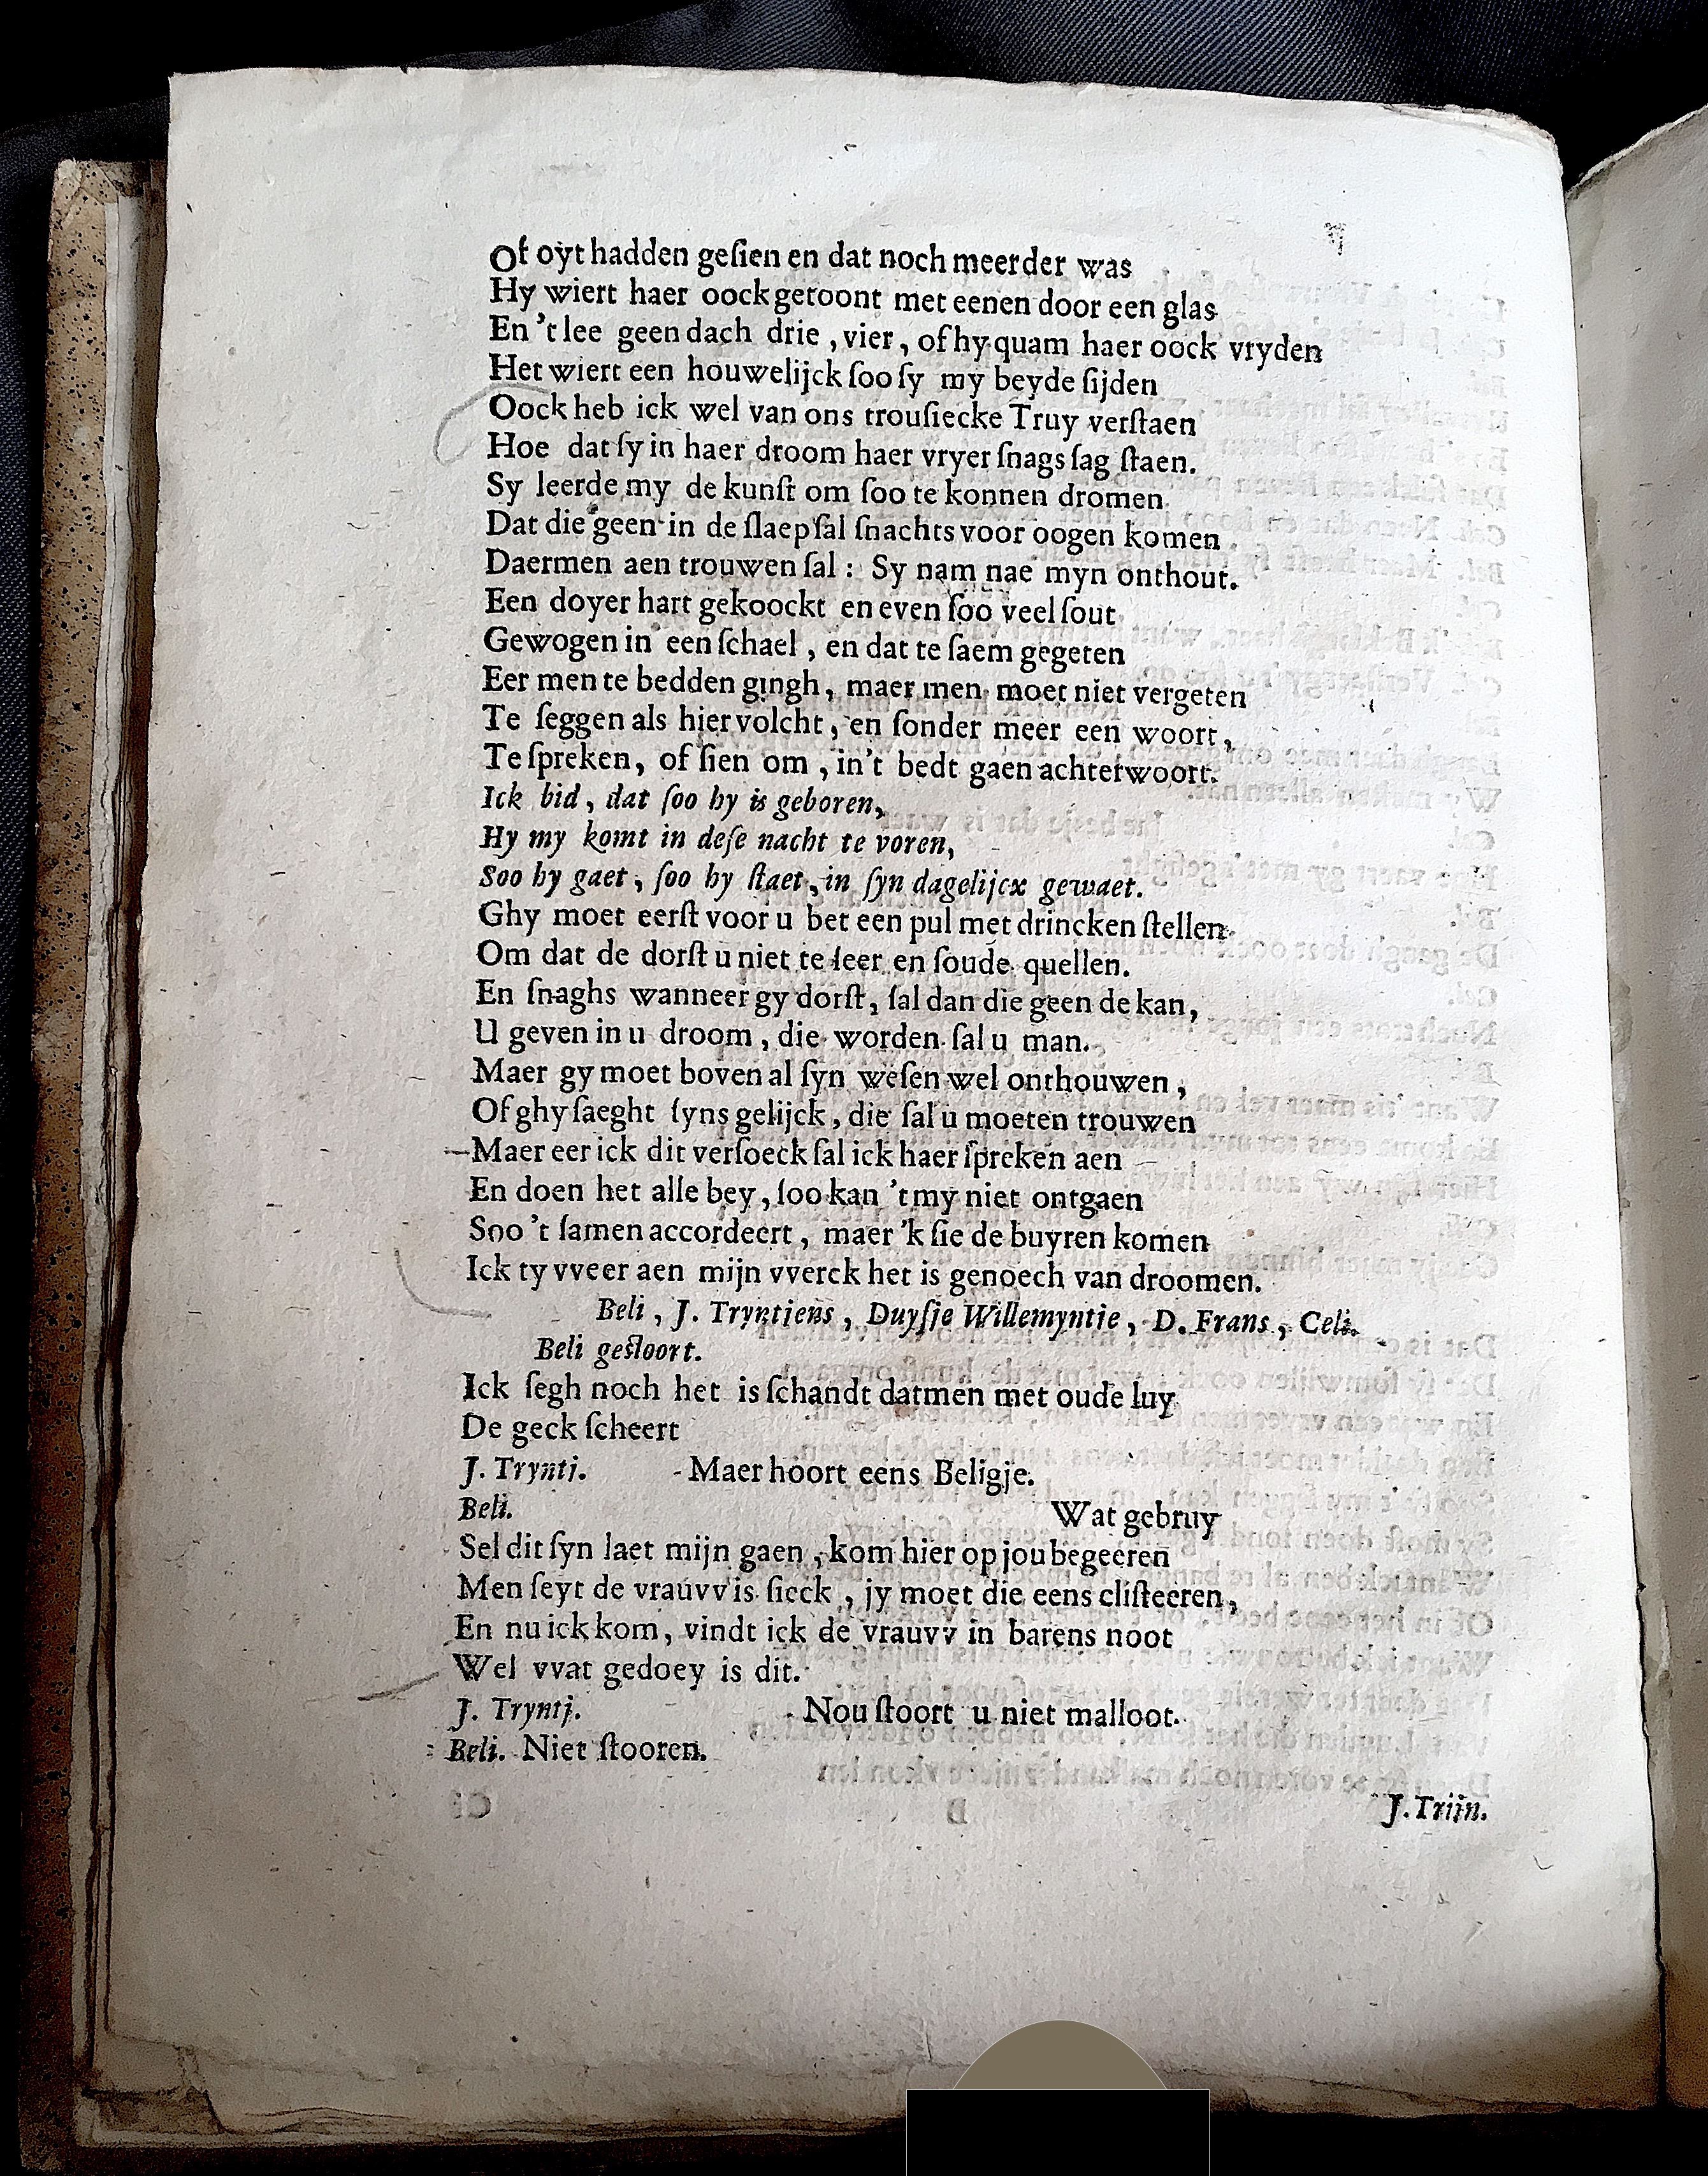 Of oyt hadden geſien en dat noch meerder was
Hy wiert haer oock getoont met eenen door een glas
En 't lee geen dach drie, vier, of hy quam haer oock vryden
Het wiert een houwelijck ſoo ſy my beyde ſijden
Oock heb ick wel van ons trouſiecke Truy verſtaen
Hoe dat ſy in haer droom haer vryer ſnags ſag ſtaen.
Sy leerde my de kunſt om ſoo te konnen dromen
Dat die geen in de ſlaep ſal ſnachts voor oogen komen
Daermen aen trouwen ſal: Sy nam nae myn onthout.
Een doyer hart gekoockt en even ſoo veel ſout
Gewogen in een ſchael, en dat te ſaem gegeten
Eer men te bedden gingh, maer men moet niet vergeten
Te ſeggen als hier volcht, en ſonder meer een woort,
Te ſpreken, of ſien om, in't bedt gaen achterwoort.
Ick bid, dat ſoo hy is geboren,
Hy my komt in deſe nacht te voren,
Soo hy gaet, ſoo hy ſtaet, in ſyn dagelijcx gewaet.
Ghy moet eerſt voor u bet een pul met drincken ſtellen
Om dat de dorſt u niet te ſeer en ſoude quellen.
En ſnaghs wanneer gy dorſt, ſal dan die geen de kan,
U geven in u droom, die worden ſal u man.
Maer gy moet boven al ſyn weſen wel onthouwen,
Of ghy ſaeght ſyns gelijck, die ſal u moeten trouwen
Maer eer ick dit verſoeck ſal ick haer ſpreken aen
En doen het alle bey, ſoo kan 't my niet ontgaen
Soo 't ſamen accordeert, maer 'k ſie de buyren komen
Ick ty vveer aen mijn vverck het is genoech van droomen.
Beli, J. Tryntiens, Duyſje Willemyntie, D. Frans, Celi.
Beli geſtoort.
Ick ſegh noch het is ſchandt datmen met oude luy
De geck ſcheert
J. Tryntj. Maer hoort eens Beligje.
Beli. Wat gebruy
Sel dit ſyn laet mijn gaen, kom hier op jou begeeren
Men ſeyt de vrauvv is ſieck, jy moet die eens cliſteeren,
En nu ick kom, vindt ick de vrauvv in barens noot
Wel vvat gedoey is dit.
J. Tryntj. Nou ſtoort u niet malloot.
Beli. Niet ſtooren.
J. Triin.